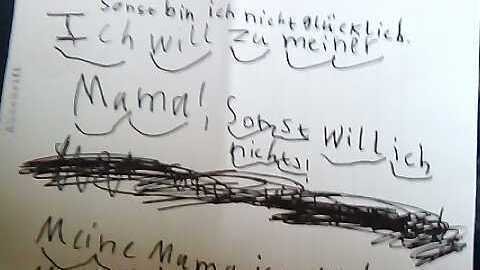 Sonst bin ich nicht glücklich.
Ich will zu meiner
Mama! Sonst will ich
nichts!
Meine Mama